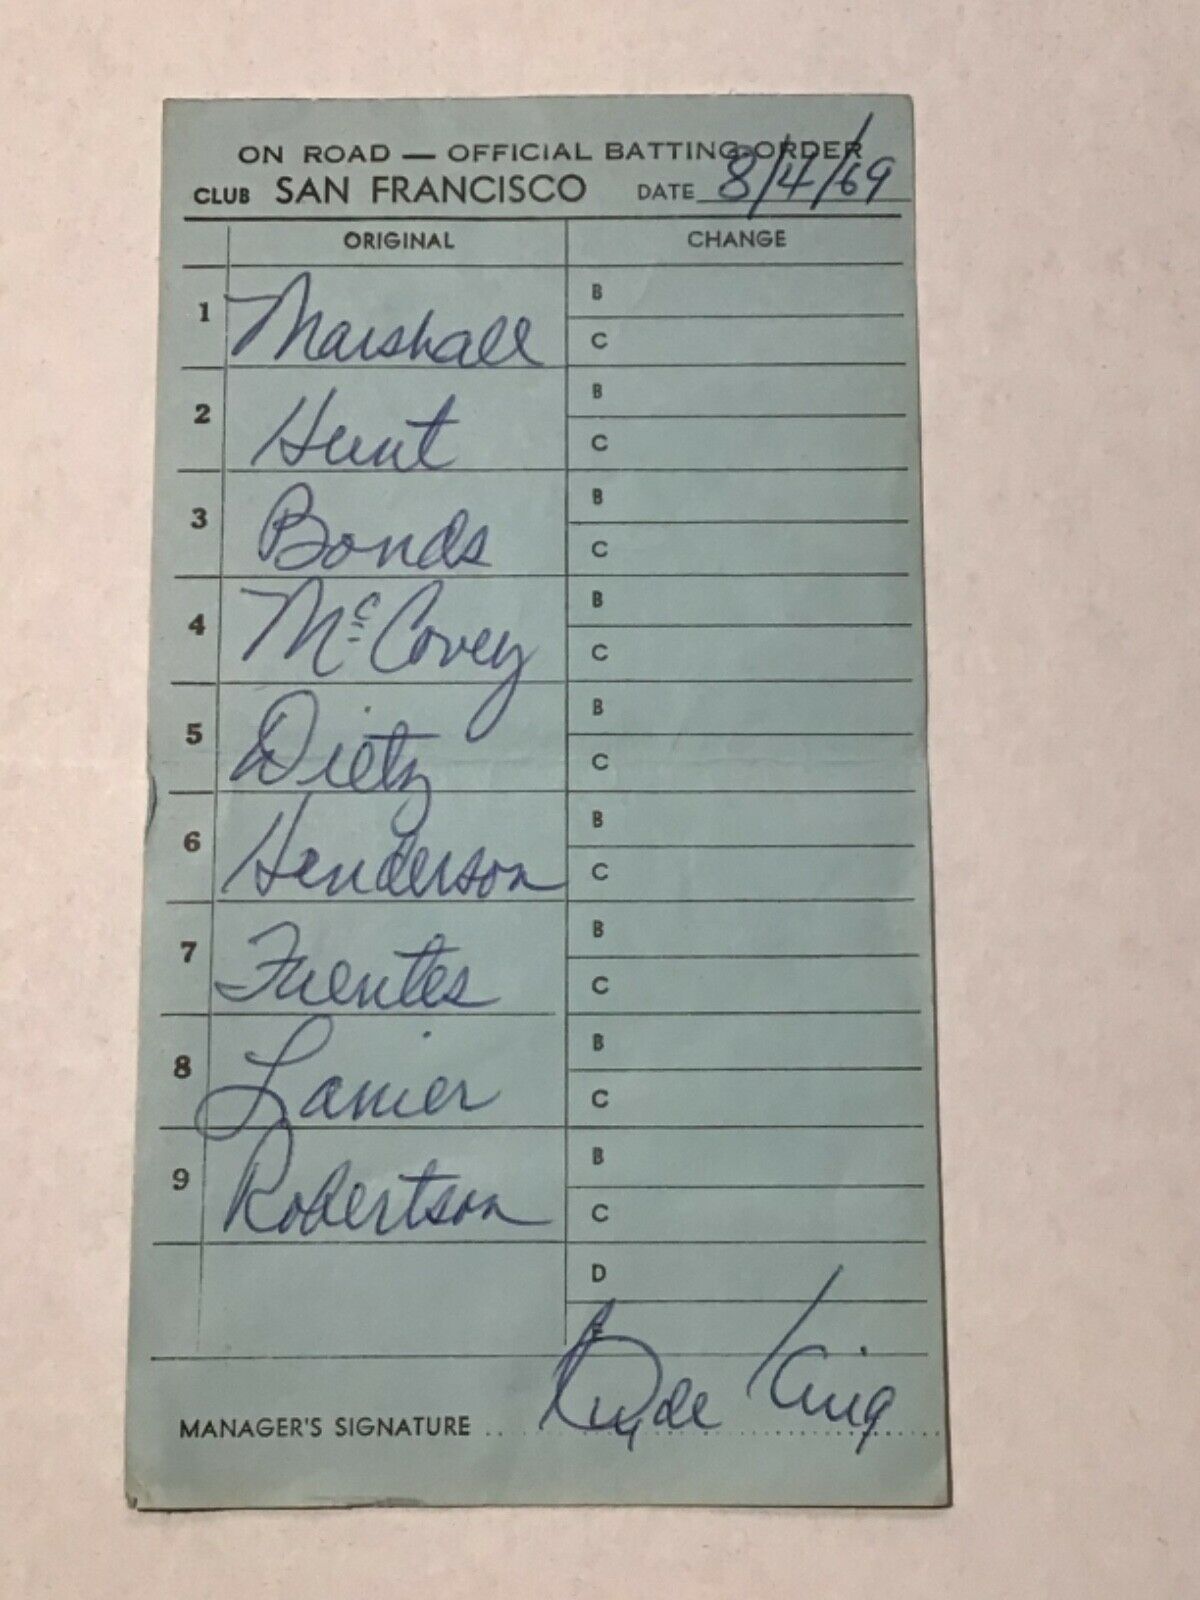 ON ROAD — OFFICIAL BATTING ORDER
CLUB SAN FRANCISCO DATE 8/4/69
ORIGINAL CHANGE
1 Marshall B
C
2 Hunt B
C
3 Bonds B
C
4 McCovey B
C
5 Dietz B
C
6 Henderson B
C
7 Fuentes B
C
8 Lanier B
C
9 Robertson B
C
D
E
MANAGER'S SIGNATURE .. Clyde King